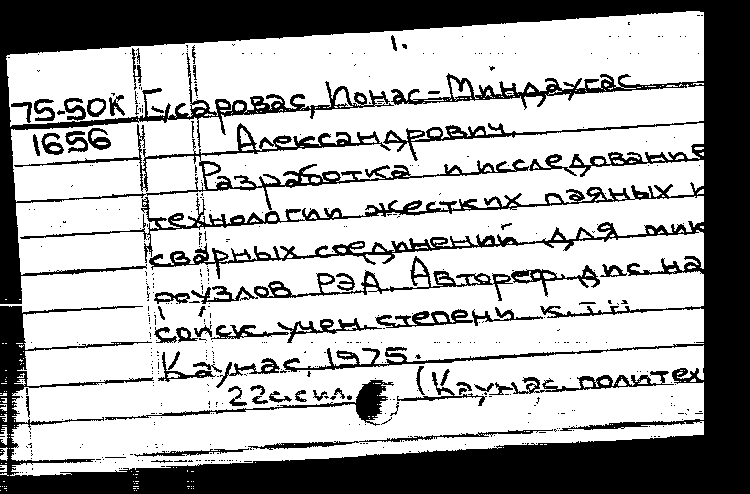 1.
75-50К Гусаровас, Йонас-Миндаугас
1656 Александрович.
Разработка и исследование
технологии жестких паяных и
сварных соединений для мик
роузлов РЭА. Автореф. дис. на
соиск. учен. степени к.т.н.
Каунас, 1975.
22с. с ил. (Каунас. политех